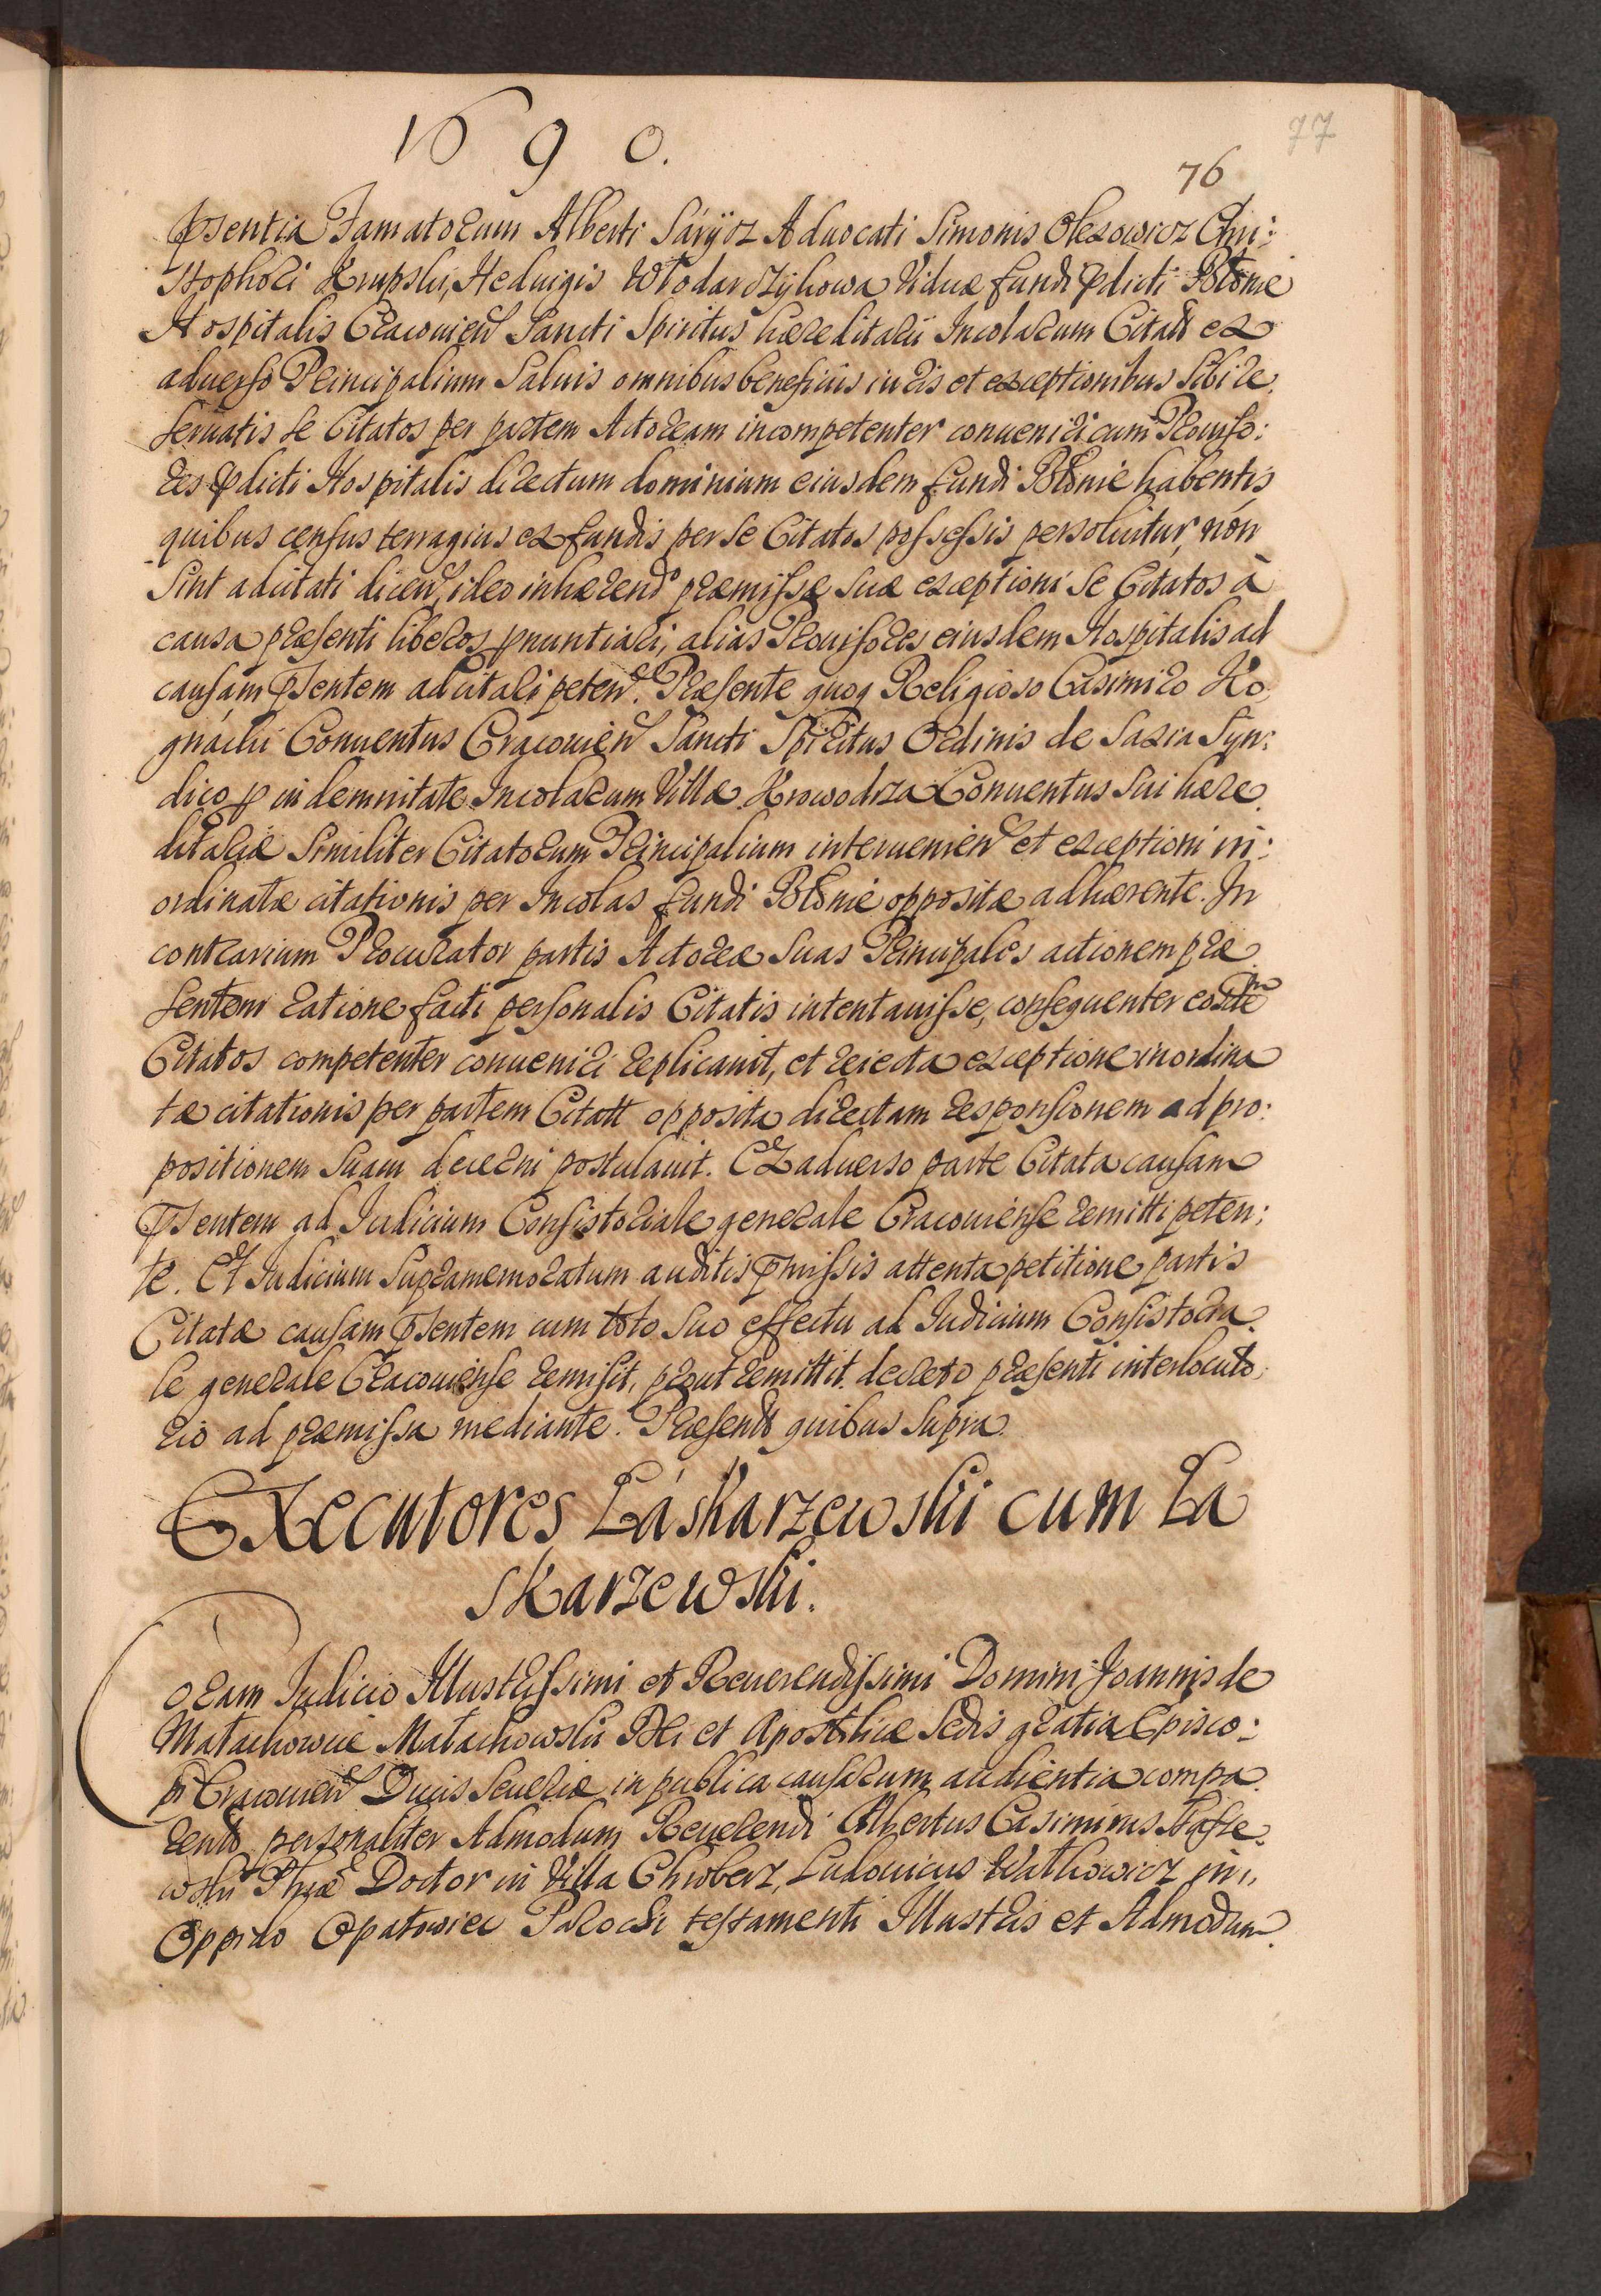 1690.
77
76
Pñsentia Famatorum Alberti Sáryísz Aduocati Simonis Olexowicz Chri:
stophori Krupski, Heduigis Włodarczykowa Viduæ fundi pdicti Błonie
Hospitalis Cracouien Sancti Spiritus hæreditarii Incolarum Citatt ex
aduerso Principalium Saluis omnibus beneficiis iuris et exceptionibus Sibi re.
seruatis se Citatos per partem Actoream incompetenter conueniri cum Prouiso:
res pdicti Hospitalis directum dominium eiusdem fundi Błonie habentes
quibus census terragius ex fundis per se Citatos possessis persoluitur, non
sint adcitati dicen, ideo inhærendo præmissæ suæ exceptioni se Citatos à
causa præsenti liberos pnuntiari, alias Prouisores eiusdem Hospitalis ad
causam pñsentem adcitari peten. Præsente quoq Religioso Casimiro Ro,
gnáckii Conuentus Cracouien Sancti Spiritus Ordinis de Saxia Syn:
dico p indemnitate Incolarum Villæ Krowodrza Conuentus Sui hære.
ditariæ Similiter Citatorum Principalium interuenien et exceptioni in:
ordinatæ citationis per Incolas fundi Błonie oppositæ adhærente. In
contrarium Procurator partis Actoreæ Suas Principales actionem præ
sentem ratione facti personalis Citatis intentauisse, consequenter eosde
Citatos competenter conueniri replicauit, et reiecta exceptione inordina
tæ citationis per partem Citatt opposita directam responsionem ad pro:
positionem Suam decerni postulauit. Ex aduerso parte Citata causam
pñsentem ad Iudicium Consistoriale generale Cracouiense remitti peten:
te. Et Iudicium Supramemoratum auditis pmissis attenta petitione partis
Citatæ causam pñsentem cum toto Suo effectu ad Iudicium Consistoria.
le generale Cracouiense remisit, prout remittit decreto præsenti interlocuto:
rio ad præmissa mediante. Præsentt quibus Supra.
Executores Łáskarzewski cum Ła
skarzewski.
Coram Iudicio Illustrissimi et Reuerendissimi Domini Joannis de
Małachowice Małachowski Dei et Apostolicæ Sedis gratia Episco:
pi Cracouien Ducis Seueriæ in publica causarum audientia compa.
rentt personaliter Admodum Reuerendi Albertus Casimirus
wski Phiæ Doctor in Villa Chroberz, Ludouicus Wathowicz in,
Oppido Opatowiec Parochi testamenti Illustris et Admodum.